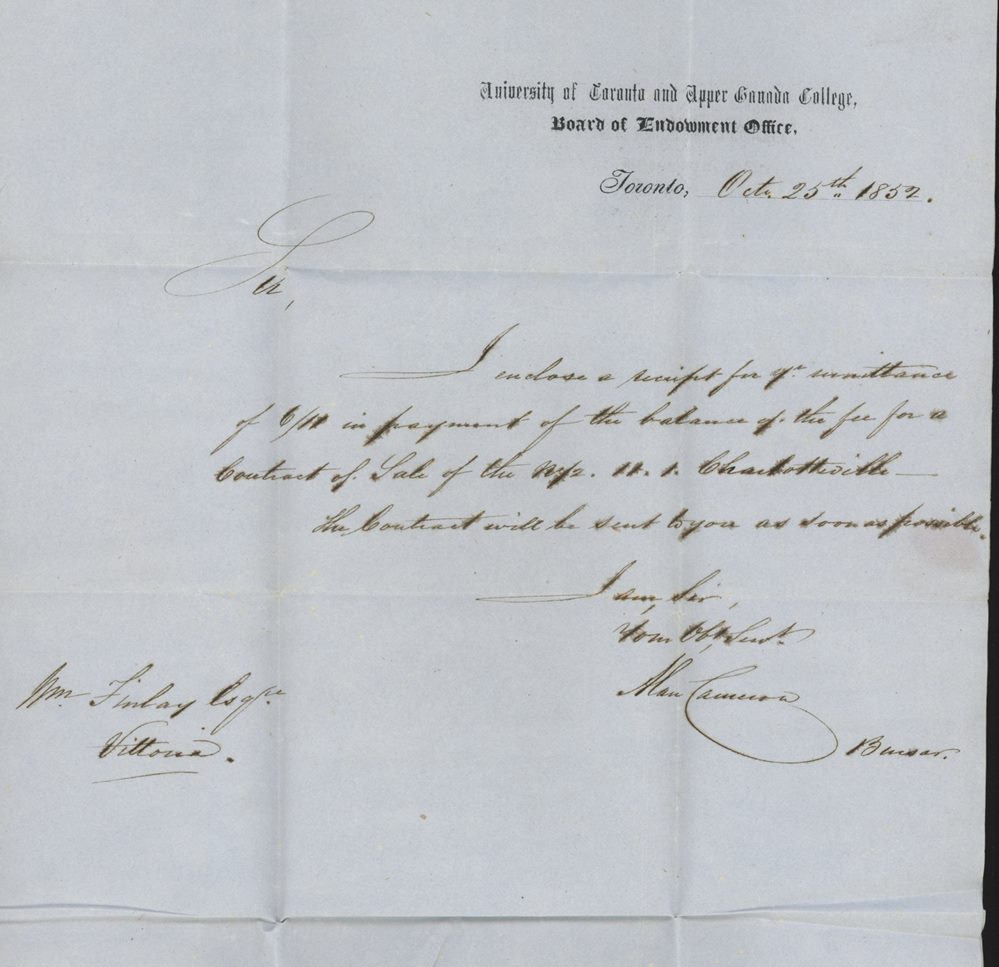 University of Toronto and Upper Canada College,
Board of Endowment Office,
Toronto, Octr 25th 1852.
Sir,
I enclose a receipt for yr. remittance
of 6/11 in payment of the balance of the fee for a
Contract of Sale of the 11. 1. Charlotteville —
The Contract will be sent to you as soon as possible.
I am, Sir,
Your Obt. Servt.
Alan Cameron
Bursar.
Wm. Finlay Esqre.
Vittoria.